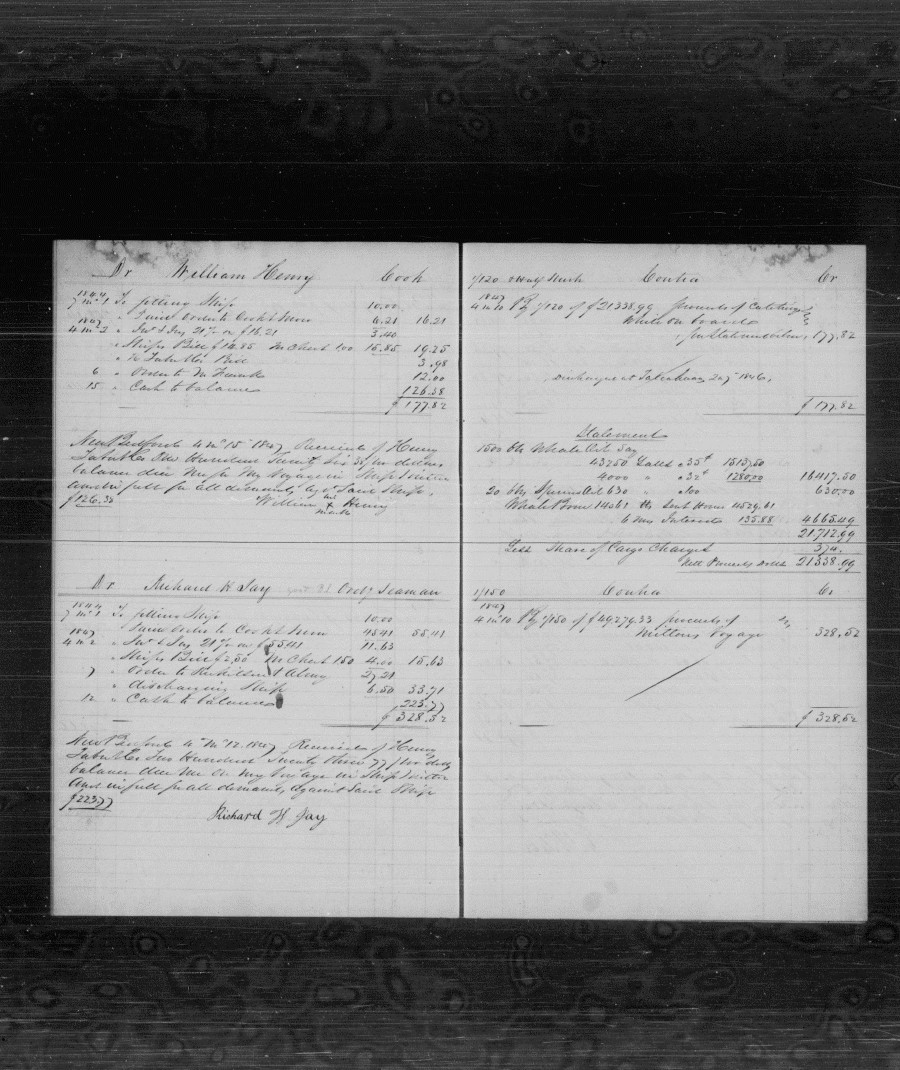 Dr William Henry Cook
1844
7 mo 1 To fitting Ship 10.00
" Paid order to Cook & Snow 6.21 16.21
1847
4 mo 2 " Int & Ins 21% on $16.21 3.40
" Ships Bill $14.85 M Chest 1.00 15.85 19.25
" H Taber & Co Bill 3.98
6 " Order to 12.00
15 " Cash to balance 126.38
$177.82
New Bedford 4 mo 15 1847 Received of Henry
Taber & Co One Hundred Twenty Six 38/100 dollars
balance due me for my Voyage in Ship
and in full for all demands agt Said Ship.
$126.38 William Henry
his X mark
Dr Richard H Jay Seaman
1844
7 mo 1 To fitting Ship 10.00
" Paid order to Cook & Snow 45.41 55.41
1847
4 mo 2 " Int & Ins 21% on $55.41 11.63
" Ships Bill $2.50 M Chest 1.50 4.00 15.63
7 " Order to 27.21
" discharging Ship 6.50 33.71
12 " Cash to balance 223.77
$328.52
New Bedford 4 mo 12. 1847 Received of Henry
Taber & Co Two Hundred Twenty three 77/100 dolls
balance due me on my Voyage in Ship
And in full for all demands against Said Ship
$223.77
Richard H Jay
1/120 Contra Cr
1847
4 mo 10 By 1/120 of $21338.99 proceeds of
While On board
pr Statement below, 177.82
discharged at 1846.
$177.82
Statement
1500 bls Whale Oil Say
43250 Galls " 35c 15137.50
4000 " " 32c 1280.00 16417.50
20 bls Sperm Oil 630 " 100 630.00
Whale Bone lbs Sent Home 4529.61
6 mos Interest 135.88 4665.49
21,712.99
Less Share of Cargo Charges 374.
Nett Proceeds Dolls 21338.99
1/150 Contra Cr
1847
4 mo 10 By 1/150 of $49,279.33 proceeds of
Voyage 328.52
$328.52